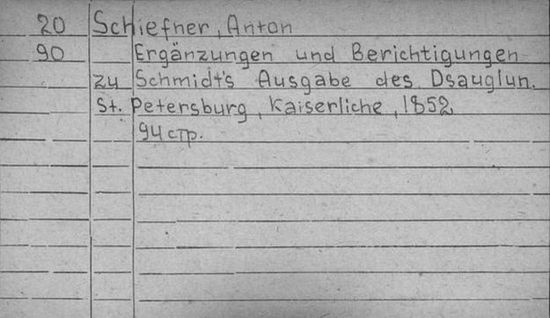 20 Schiefner, Anton
90 Ergänzungen und Berichtigungen
zu Schmidt's Ausgabe des Dsauglun.
St. Petersburg, Kaiserliche, 1852
94 стр.